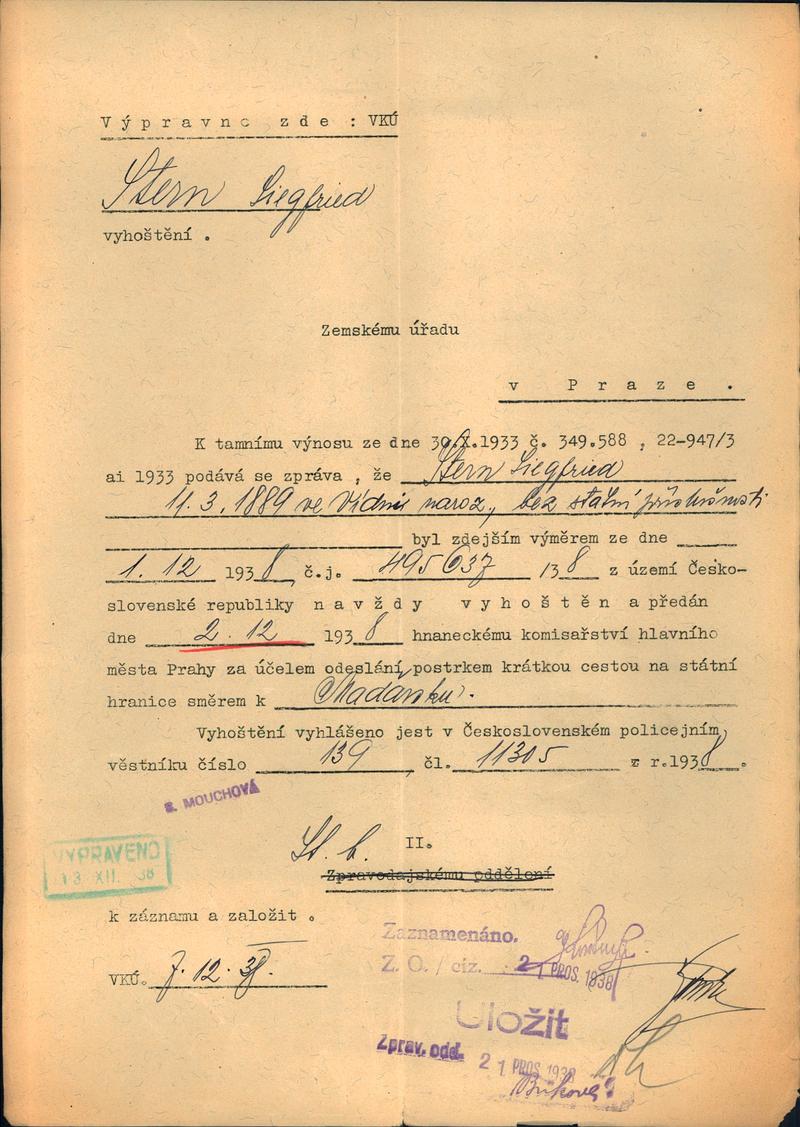 Výpravno zde : VKÚ
Stern Siegfried
vyhoštění .
Zemskému úřadu
v Praze .
K tamnímu výnosu ze dne 30.X.1933 č. 349.588 , 22-947/3
ai 1933 podává se zpráva , že Stern Siegfried
11.3.1889 ve Vídni naroz., bez státní příslušnosti
byl zdejším výměrem ze dne
1. 12 1938 č.j. 495637 /38 z území Česko-
slovenské republiky navždy vyhoštěn a předán
dne 2. 12 1938 hnaneckému komisařství hlavního
města Prahy za účelem odeslání postrkem krátkou cestou na státní
hranice směrem k Maďarsku.
Vyhoštění vyhlášeno jest v Československém policejním
věstníku číslo 139 čl. 11305 z r.1938 .
MOUCHOVÁ
VYPRAVENO
13 XII. 38
II.
St. b.
Zpravodajskému oddělení
k záznamu a založit .
Zaznamenáno.
Z. O. / ciz. 21 PROS. 1938
VKÚ. 7. 12. 38.
Uložit
Zprav. odd. 21 PROS 1938